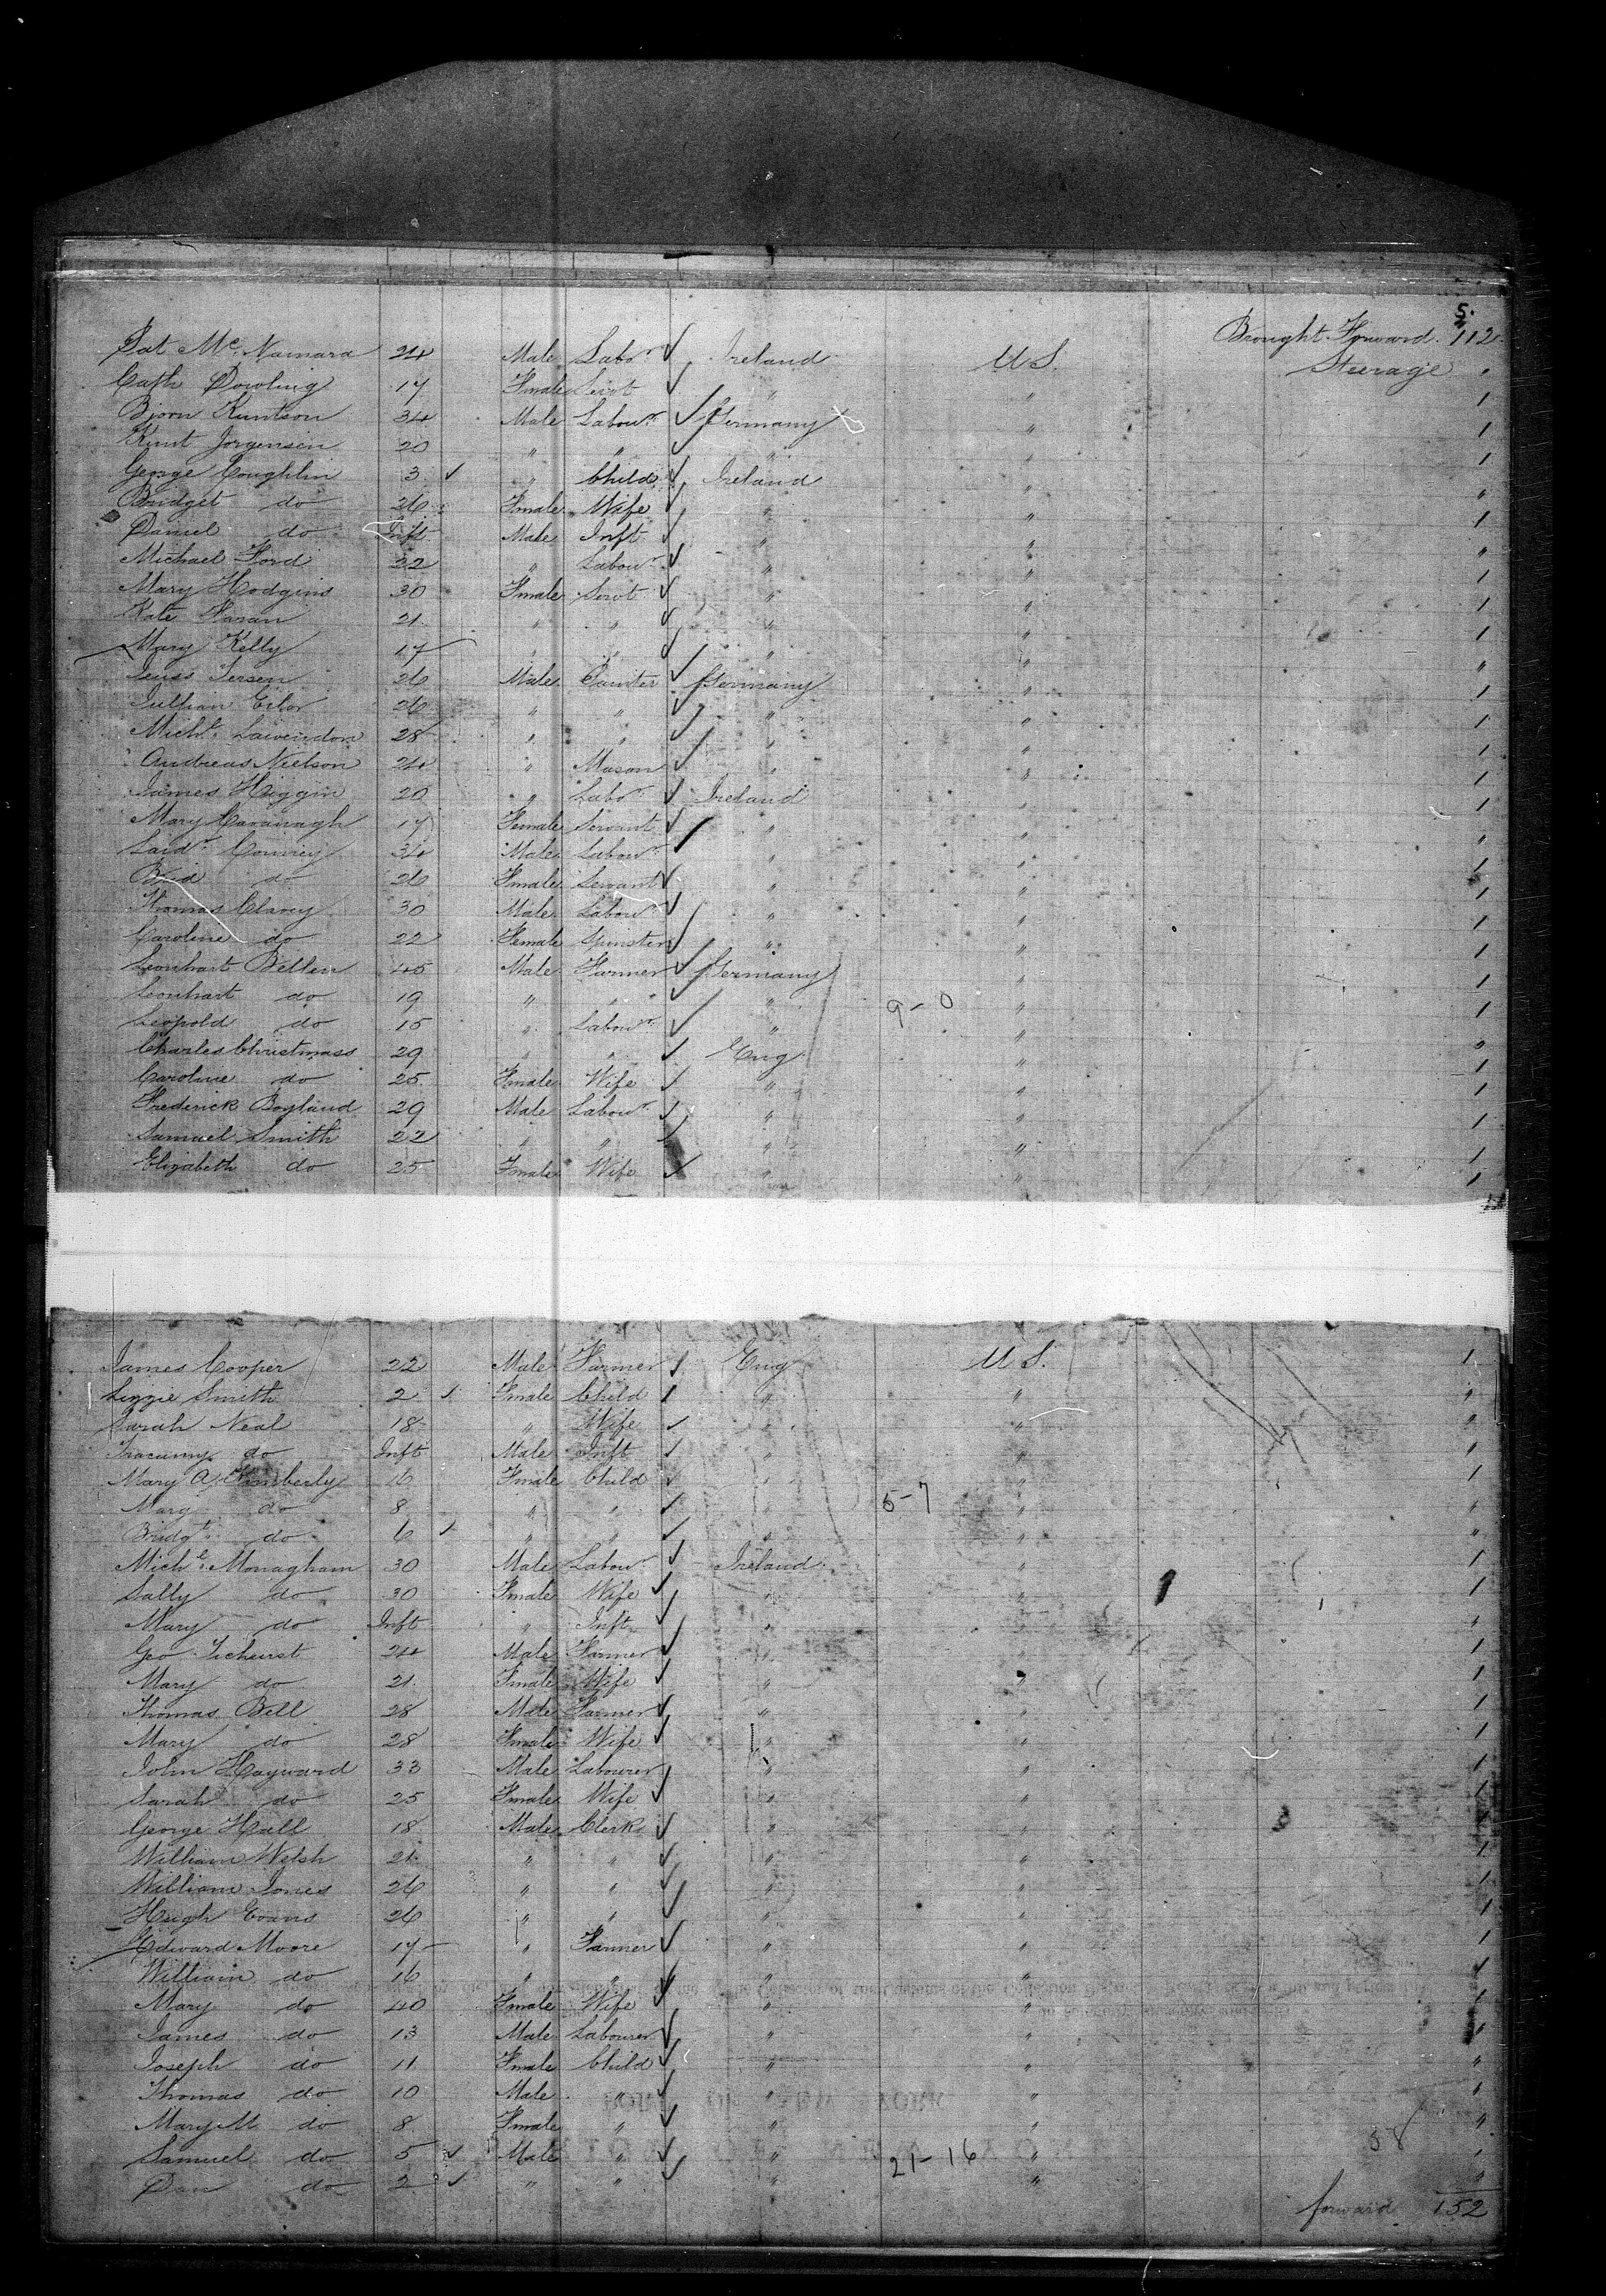 5.
Brought Forward. 112
Pat Mc. Namara 24 Male Labr. Ireland U S. Steerage
Cath Dowling 17 Female Servt " " 1
Bjorn Kuntson 34 Male Labour. Germany " 1
Kunt Jorgensen 20 " " " " 1
George Coughlin 3 " Child Ireland " "
Bridget do 26 Female Wife " " 1
Daniel do Inft Male Inft " " "
Michael Ford 22 " Labour. " " 1
Mary Hodgins 30 Female Servt " " 1
Kate Haran 21 " " " " 1
Mary Kelly 17 " " " " "
Jersen 26 Male Painter Germany " 1
Jullian Eibor 26 " " " " 1
Michl. Lawendon 28 " " " " 1
Andreas Nielson 24 " Mason " " 1
James Higgin 20 " Labr. Ireland " 1
Mary Cavanagh 17 Female Servant " " "
Convey 34 Male Labour. " " 1
Brid do 26 Female Servant " " 1
Thomas Clancy 30 Male Labour. " " 1
Caroline do 22 Female Spinster " " 1
Leonhart Bellen 45 Male Farmer Germany " 1
Leonhart do 19 " " " 9-0 " 1
Leopold do 15 " Labour. " " "
Charles Christmass 29 " " Eng " 1
Caroline do 25 Female Wife " " 1
Frederick Boyland 29 Male Labour. " " 1
Samuel Smith 22 " " " " 1
Elizabeth do 25 Female Wife " " 1
James Cooper 22 Male Farmer Eng U S. 1
Lizzie Smith 2 Female Child " " "
Sarah Neal 18 " Wife " " "
do Inft Male Inft " " "
Mary A. Kimberly 16 Female Child " " 1
Mary do 8 " " " 5-7 " "
Bridgt. do 6 " " " " "
Michl. Monagham 30 Male Labour. Ireland " 1
Sally do 30 Female Wife " " 1
Mary do Inft " Inft " " "
Geo Ticehurst 24 Male Farmer " " 1
Mary do 21 Female Wife " " 1
Thomas Bell 28 Male Farmer " " 1
Mary do 28 Female Wife " " 1
John Hayward 33 Male Labourer " " 1
Sarah do 25 Female Wife " " 1
George Hall 18 Male Clerk " " 1
William Welsh 21 " " " " 1
William Jones 26 " " " " 1
Hugh Evans 26 " " " " 1
Edward Moore 17 " Farmer " " 1
William do 16 " " " " 1
Mary do 40 Female Wife " " 1
James do 13 Male Labourer " " 1
Joseph do 11 Female Child " " "
Thomas do 10 Male " " " "
Mary M do 8 Female " " " "
Samuel do 5 Male " " 21-16 " 38 "
Dan do 2 " " " " "
forward 152